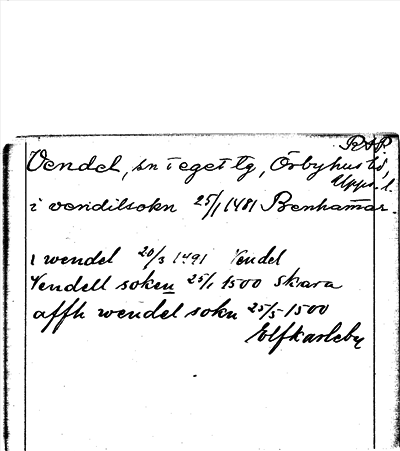 RAP.
Vendel, sn i eget tg, Örbyhus hd,
Upps. l.
i vendilsokn 25/1 1481 Benhamar.
i wendel 20/3 1491 Vendel
Vendell soken 25/1 1500 Skara
affh wendel sokn 25/5 1500
Elfkarleby